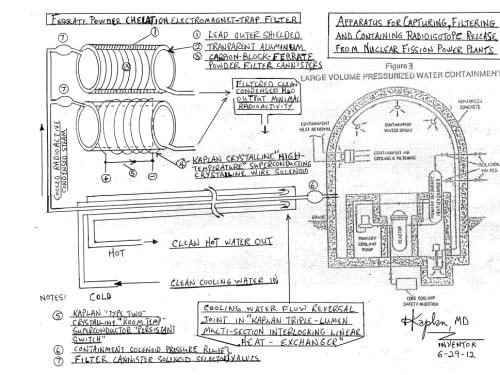 FERRATE POWDER CHELATION ELECTROMAGNET-TRAP FILTER
APPARATUS FOR CAPTURING, FILTERING
AND CONTAINING RADIOISOTOPE RELEASE
FROM NUCLEAR FISSION POWER PLANTS.
① LEAD OUTER SHIELDED
② TRANSPARENT ALUMINUM
③ CARBON-BLOCK-FERRATE
POWDER FILTER CANNISTERS
FILTERED CLEAN
CONDENSED H2O
OUTPUT MINIMAL
RADIOACTIVITY
④ KAPLAN CRYSTALLINE "HIGH-
TEMPERATURE" SUPERCONDUCTING
CRYSTALLINE WIRE SOLENOID
COOLED RADIOACTIVE
CONDENSED STEAM
⑦
①
③
⑦
+
⑤
-
⑥
Figure 3
LARGE VOLUME PRESSURIZED WATER CONTAINMENT
CONTAINMENT
HEAT REMOVAL
CONTAINMENT
WATER SPRAY
REINFORCED
CONCRETE
CONTAINMENT AIR
COOLING & FILTERING
ISOLATION
VALVES
GRADE
PRIMARY
COOLANT
PUMP
REACTOR
CORE COOLANT
SAFETY INJECTION
HOT
CLEAN HOT WATER OUT
CLEAN COOLING WATER IN
COLD
NOTES:
⑤ KAPLAN "TYPE TWO"
CRYSTALLINE "ROOM TEMP"
SUPERCONDUCTOR "PERSISTANT
SWITCH"
⑥ CONTAINMENT SOLENOID PRESSURE RELIEF
⑦ FILTER CANNISTER SOLENOID SELECTOR VALVES
COOLING WATER FLOW REVERSAL
JOINT IN "KAPLAN TRIPLE-LUMEN
MULTI-SECTION INTERLOCKING LINEAR
HEAT - EXCHANGER"
Kaplan, MD
INVENTOR
6-29-12